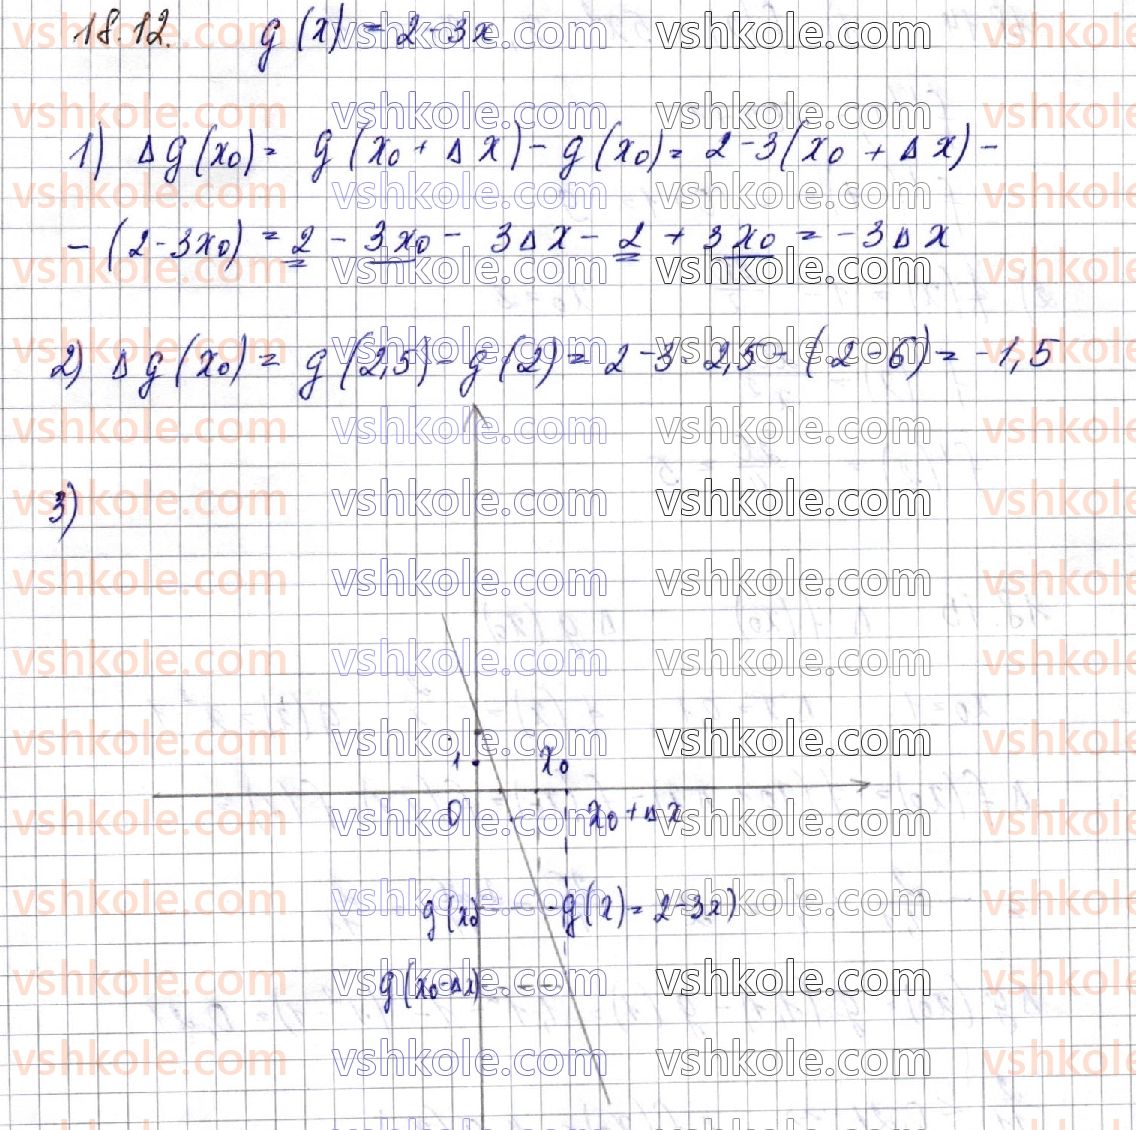 18.12. g(x) = 2-3x
1) Δg(x₀) = g(x₀ + Δx) - g(x₀) = 2-3(x₀ + Δx) -
- (2-3x₀) = 2 - 3x₀ - 3Δx - 2 + 3x₀ = -3Δx
2) Δg(x₀) = g(2,5) - g(2) = 2 - 3 · 2,5 - (2-6) = -1,5
3)
1 x₀
0 x₀ + Δx
g(x₀) g(x) = 2-3x)
g(x₀-Δx)
vshkole.com